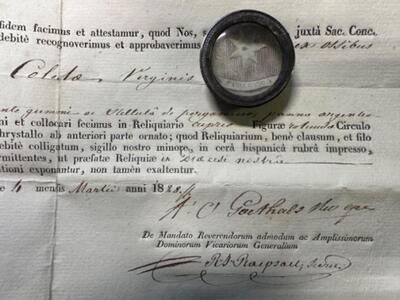 fidem facimus et attestamur, quod Nos, s juxtà Sac. Conc.
debitè recognoverimus et approbaverimus ex ossibus
Coletæ Virginis
gummi et stellulâ de pergameno, panno argenteo
ni et collocari fecimus in Reliquiario cupreo Figuræ rotundæ Circulo
chrystallo ab anteriori parte ornato; quod Reliquiarium, bené clausum, et filo
debitè colligatum, sigillo nostro minore, in cerâ hispanicâ rubrâ impresso,
rmittentes, ut præfatæ Reliquiæ in Diœcesi nostrâ
ationi exponantur, non tamen exaltentur.
4 mensis Martii anni 1828
De Mandato Reverendorum admodum ac Amplissimorum
Dominorum Vicariorum Generalium